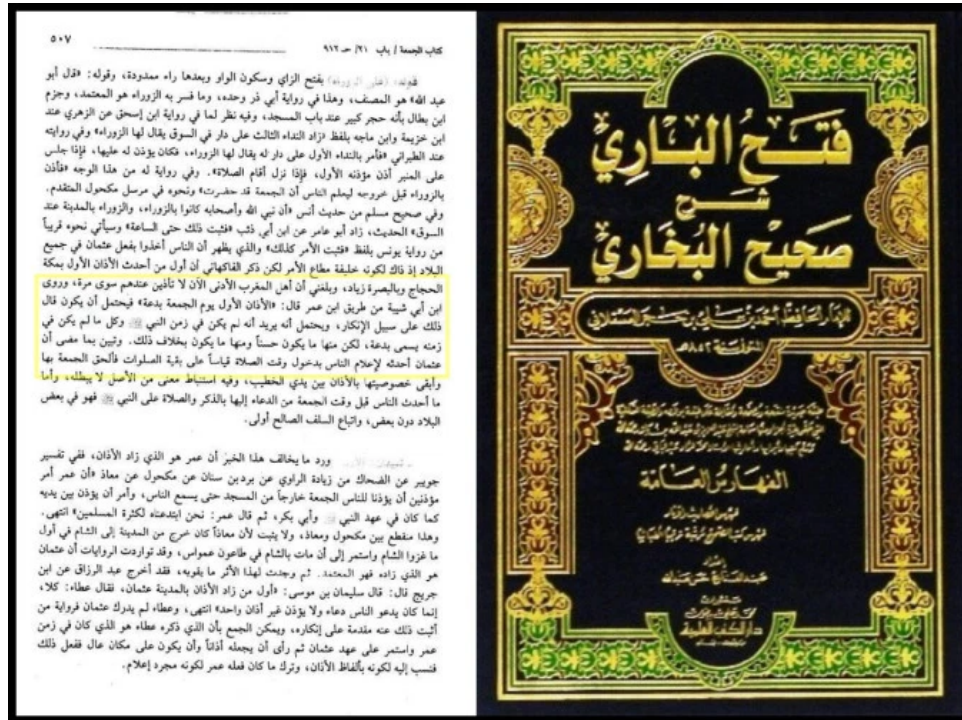 كتاب الجمعة / باب ٢١/ حـ ٩١٢
٥٠٧
قوله: (على الزوراء) بفتح الزاي وسكون الواو وبعدها راء ممدودة، وقوله: «قال أبو
عبد الله» هو المصنف، وهذا في رواية أبي ذر وحده، وما فسر به الزوراء هو المعتمد، وجزم
ابن بطال بأنه حجر كبير عند باب المسجد، وفيه نظر لما في رواية ابن إسحق عن الزهري عند
ابن خزيمة وابن ماجه بلفظ «زاد النداء الثالث على دار في السوق يقال لها الزوراء» وفي روايته
عند الطبراني «فأمر بالنداء الأول على دار له يقال لها الزوراء، فكان يؤذن له عليها، فإذا جلس
على المنبر أذن مؤذنه الأول، فإذا نزل أقام الصلاة». وفي رواية له من هذا الوجه «فأذن
بالزوراء قبل خروجه ليعلم الناس أن الجمعة قد حضرت» ونحوه في مرسل مكحول المتقدم.
وفي صحيح مسلم من حديث أنس «أن نبي الله وأصحابه كانوا بالزوراء، والزوراء بالمدينة عند
السوق» الحديث، زاد أبو عامر عن ابن أبي ذئب «فثبت ذلك حتى الساعة» وسيأتي نحوه قريباً
من رواية يونس بلفظ «فثبت الأمر كذلك» والذي يظهر أن الناس أخذوا بفعل عثمان في جميع
البلاد إذ ذاك لكونه خليفة مطاع الأمر لكن ذكر الفاكهاني أن أول من أحدث الأذان الأول بمكة
الحجاج وبالبصرة زياد، وبلغني أن أهل المغرب الأدنى الآن لا تأذين عندهم سوى مرة، وروى
ابن أبي شيبة من طريق ابن عمر قال: «الأذان الأول يوم الجمعة بدعة» فيحتمل أن يكون قال
ذلك على سبيل الإنكار، ويحتمل أنه يريد أنه لم يكن في زمن النبي ﷺ وكل ما لم يكن في
زمنه يسمى بدعة، لكن منها ما يكون حسناً ومنها ما يكون بخلاف ذلك. وتبين بما مضى أن
عثمان أحدثه لإعلام الناس بدخول وقت الصلاة قياساً على بقية الصلوات فألحق الجمعة بها
وأبقى خصوصيتها بالأذان بين يدي الخطيب، وفيه استنباط معنى من الأصل لا يبطله، وأما
ما أحدث الناس قبل وقت الجمعة من الدعاء إليها بالذكر والصلاة على النبي ﷺ فهو في بعض
البلاد دون بعض، واتباع السلف الصالح أولى.
ورد ما يخالف هذا الخبر أن عمر هو الذي زاد الأذان، ففي تفسير
جويبر عن الضحاك من زيادة الراوي عن برد بن سنان عن مكحول عن معاذ «أن عمر أمر
مؤذنين أن يؤذنا للناس الجمعة خارجاً من المسجد حتى يسمع الناس، وأمر أن يؤذن بين يديه
كما كان في عهد النبي ﷺ وأبي بكر، ثم قال عمر: نحن ابتدعناه لكثرة المسلمين» انتهى.
وهذا منقطع بين مكحول ومعاذ، ولا يثبت لأن معاذاً كان خرج من المدينة إلى الشام في أول
ما غزوا الشام واستمر إلى أن مات بالشام في طاعون عمواس، وقد تواردت الروايات أن عثمان
هو الذي زاده فهو المعتمد. ثم وجدت لهذا الأثر ما يقويه، فقد أخرج عبد الرزاق عن ابن
جريج قال: قال سليمان بن موسى: «أول من زاد الأذان بالمدينة عثمان، فقال عطاء: كلا،
إنما كان يدعو الناس دعاء ولا يؤذن غير أذان واحد» انتهى، وعطاء لم يدرك عثمان فرواية من
أثبت ذلك عنه مقدمة على إنكاره، ويمكن الجمع بأن الذي ذكره عطاء هو الذي كان في زمن
عمر واستمر على عهد عثمان ثم رأى أن يجعله أذاناً وأن يكون على مكان عال ففعل ذلك
فنسب إليه لكونه بألفاظ الأذان، وترك ما كان فعله عمر لكونه مجرد إعلام.
فتح الباري
شرح
صحيح البخاري
للإمام الحافظ أحمد بن علي بن حجر العسقلاني
المتوفى سنة ٨٥٢هـ
الفهارس العامة